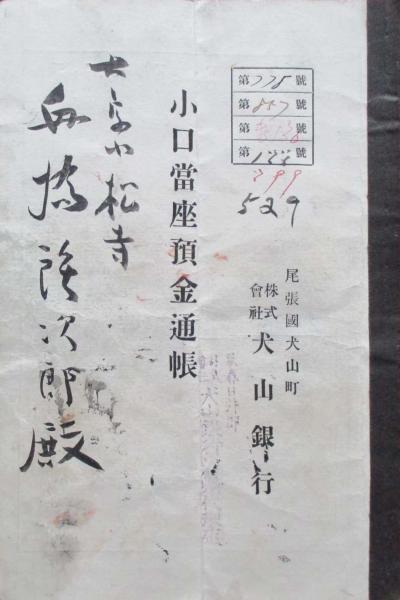 第778號
第857號
第 號
第 號
529
尾張國犬山町
株式會社犬山銀行
小口當座預金通帳
大字小松寺
舟橋 次郎殿